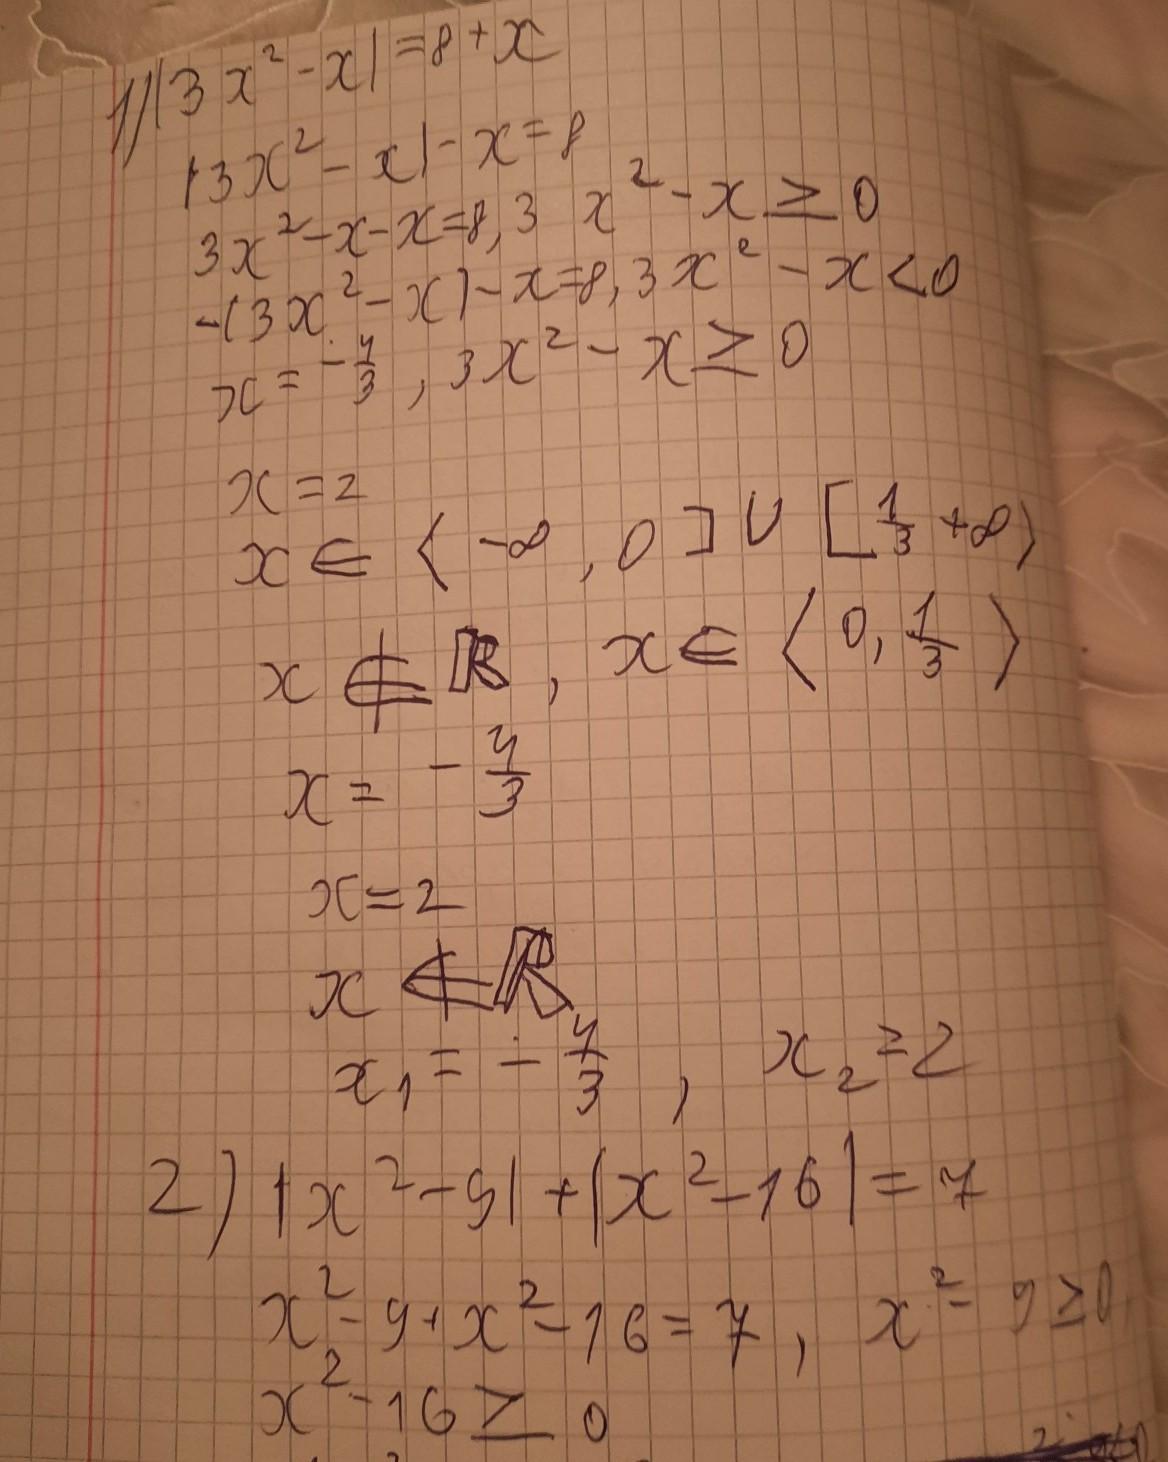 1) |3x² - x| = 8 + x
|3x² - x| - x = 8
3x² - x - x = 8, 3 x² - x ≥ 0
-(3x² - x) - x = 8, 3x² - x < 0
x = -4/3, 3x² - x ≥ 0
x = 2
x ∈ ⟨ -∞, 0 ] ∪ [ 1/3 +∞ ⟩
x ∉ ℝ, x ∈ ⟨ 0, 1/3 ⟩
x = - 4/3
x = 2
x ∉ ℝ
x₁ = - 4/3, x₂ = 2
2) |x² - 9| + |x² - 16| = 7
x² - 9 + x² - 16 = 7, x² - 9 ≥ 0
x² - 16 ≥ 0